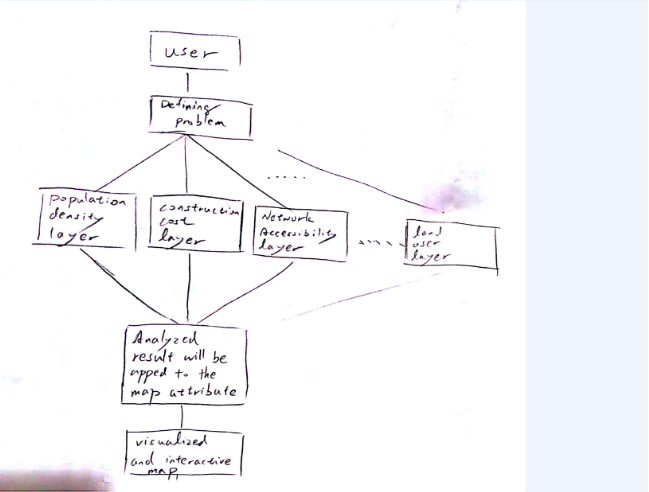 user
Defining
problem
population
density
layer
construction
cost
layer
Network
Accessibility
layer
land
user
layer
Analyzed
result will be
apped to the
map attribute
visualized
and interactive
map,